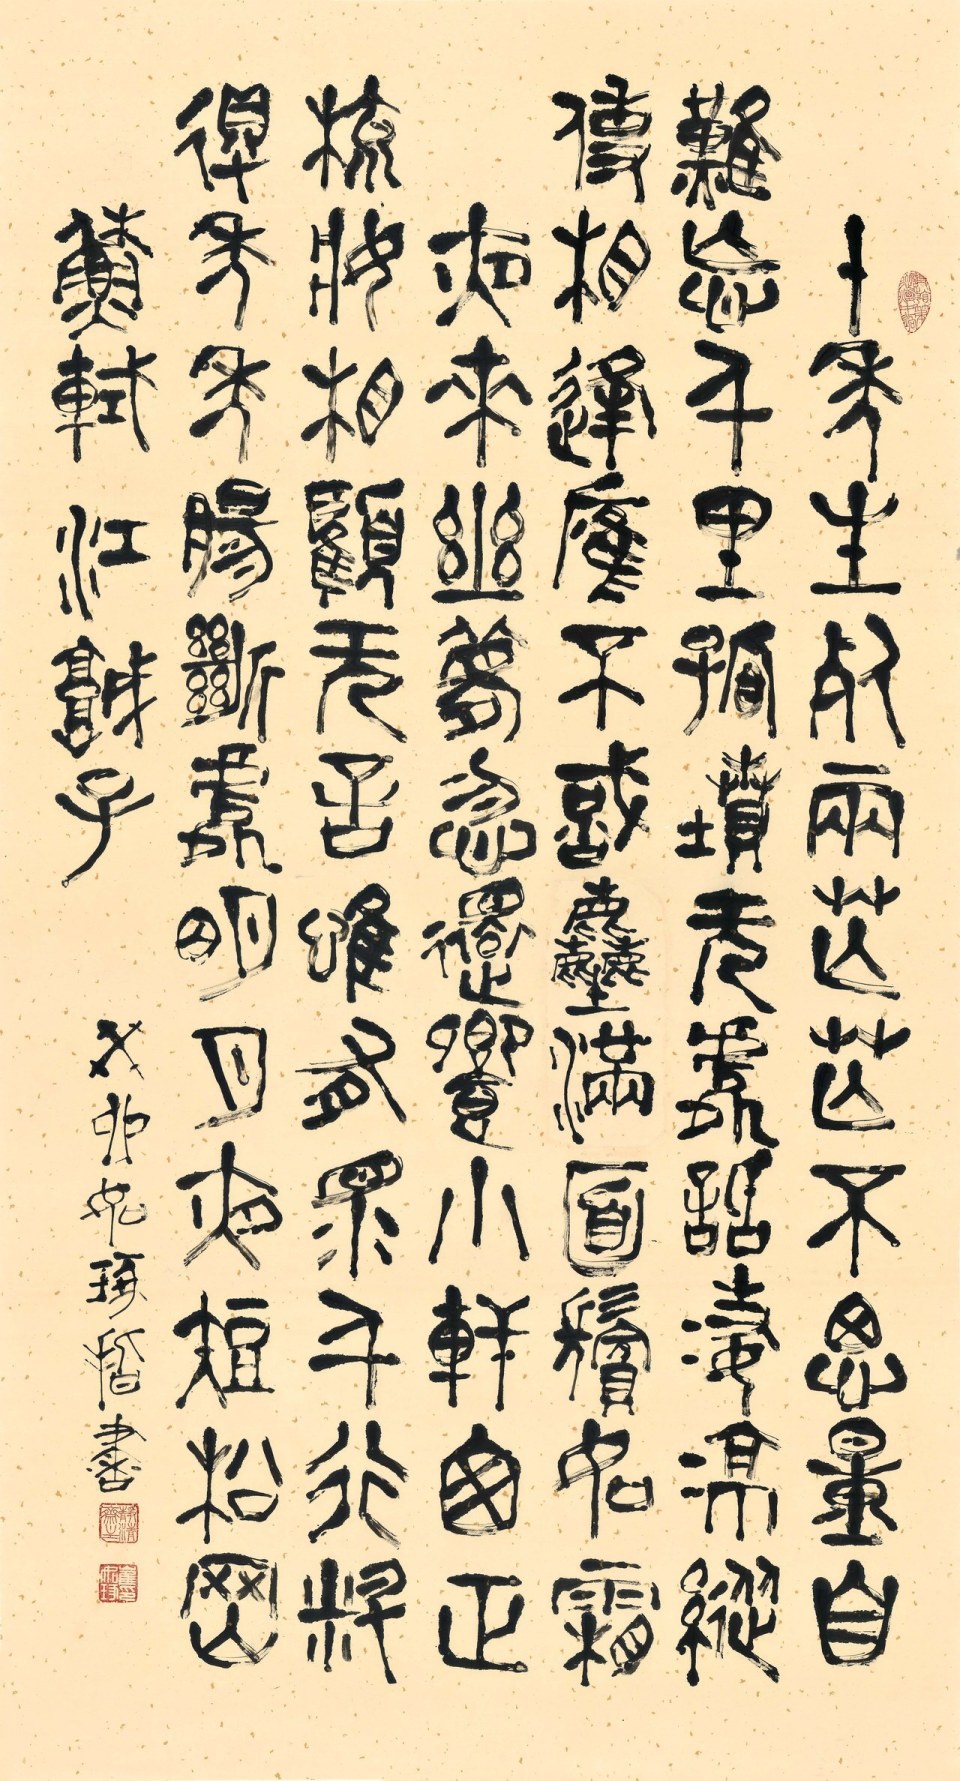 十年生死兩芒芒不思量自
難忘千里孤墳无處話淒涼縱
使相逢應不識塵滿面鬢如霜
夜來幽夢忽還鄉小軒窗正
梳妝相顧无言惟有淚千行料
得年年腸斷處明月夜短松岡
軾 江城子
書